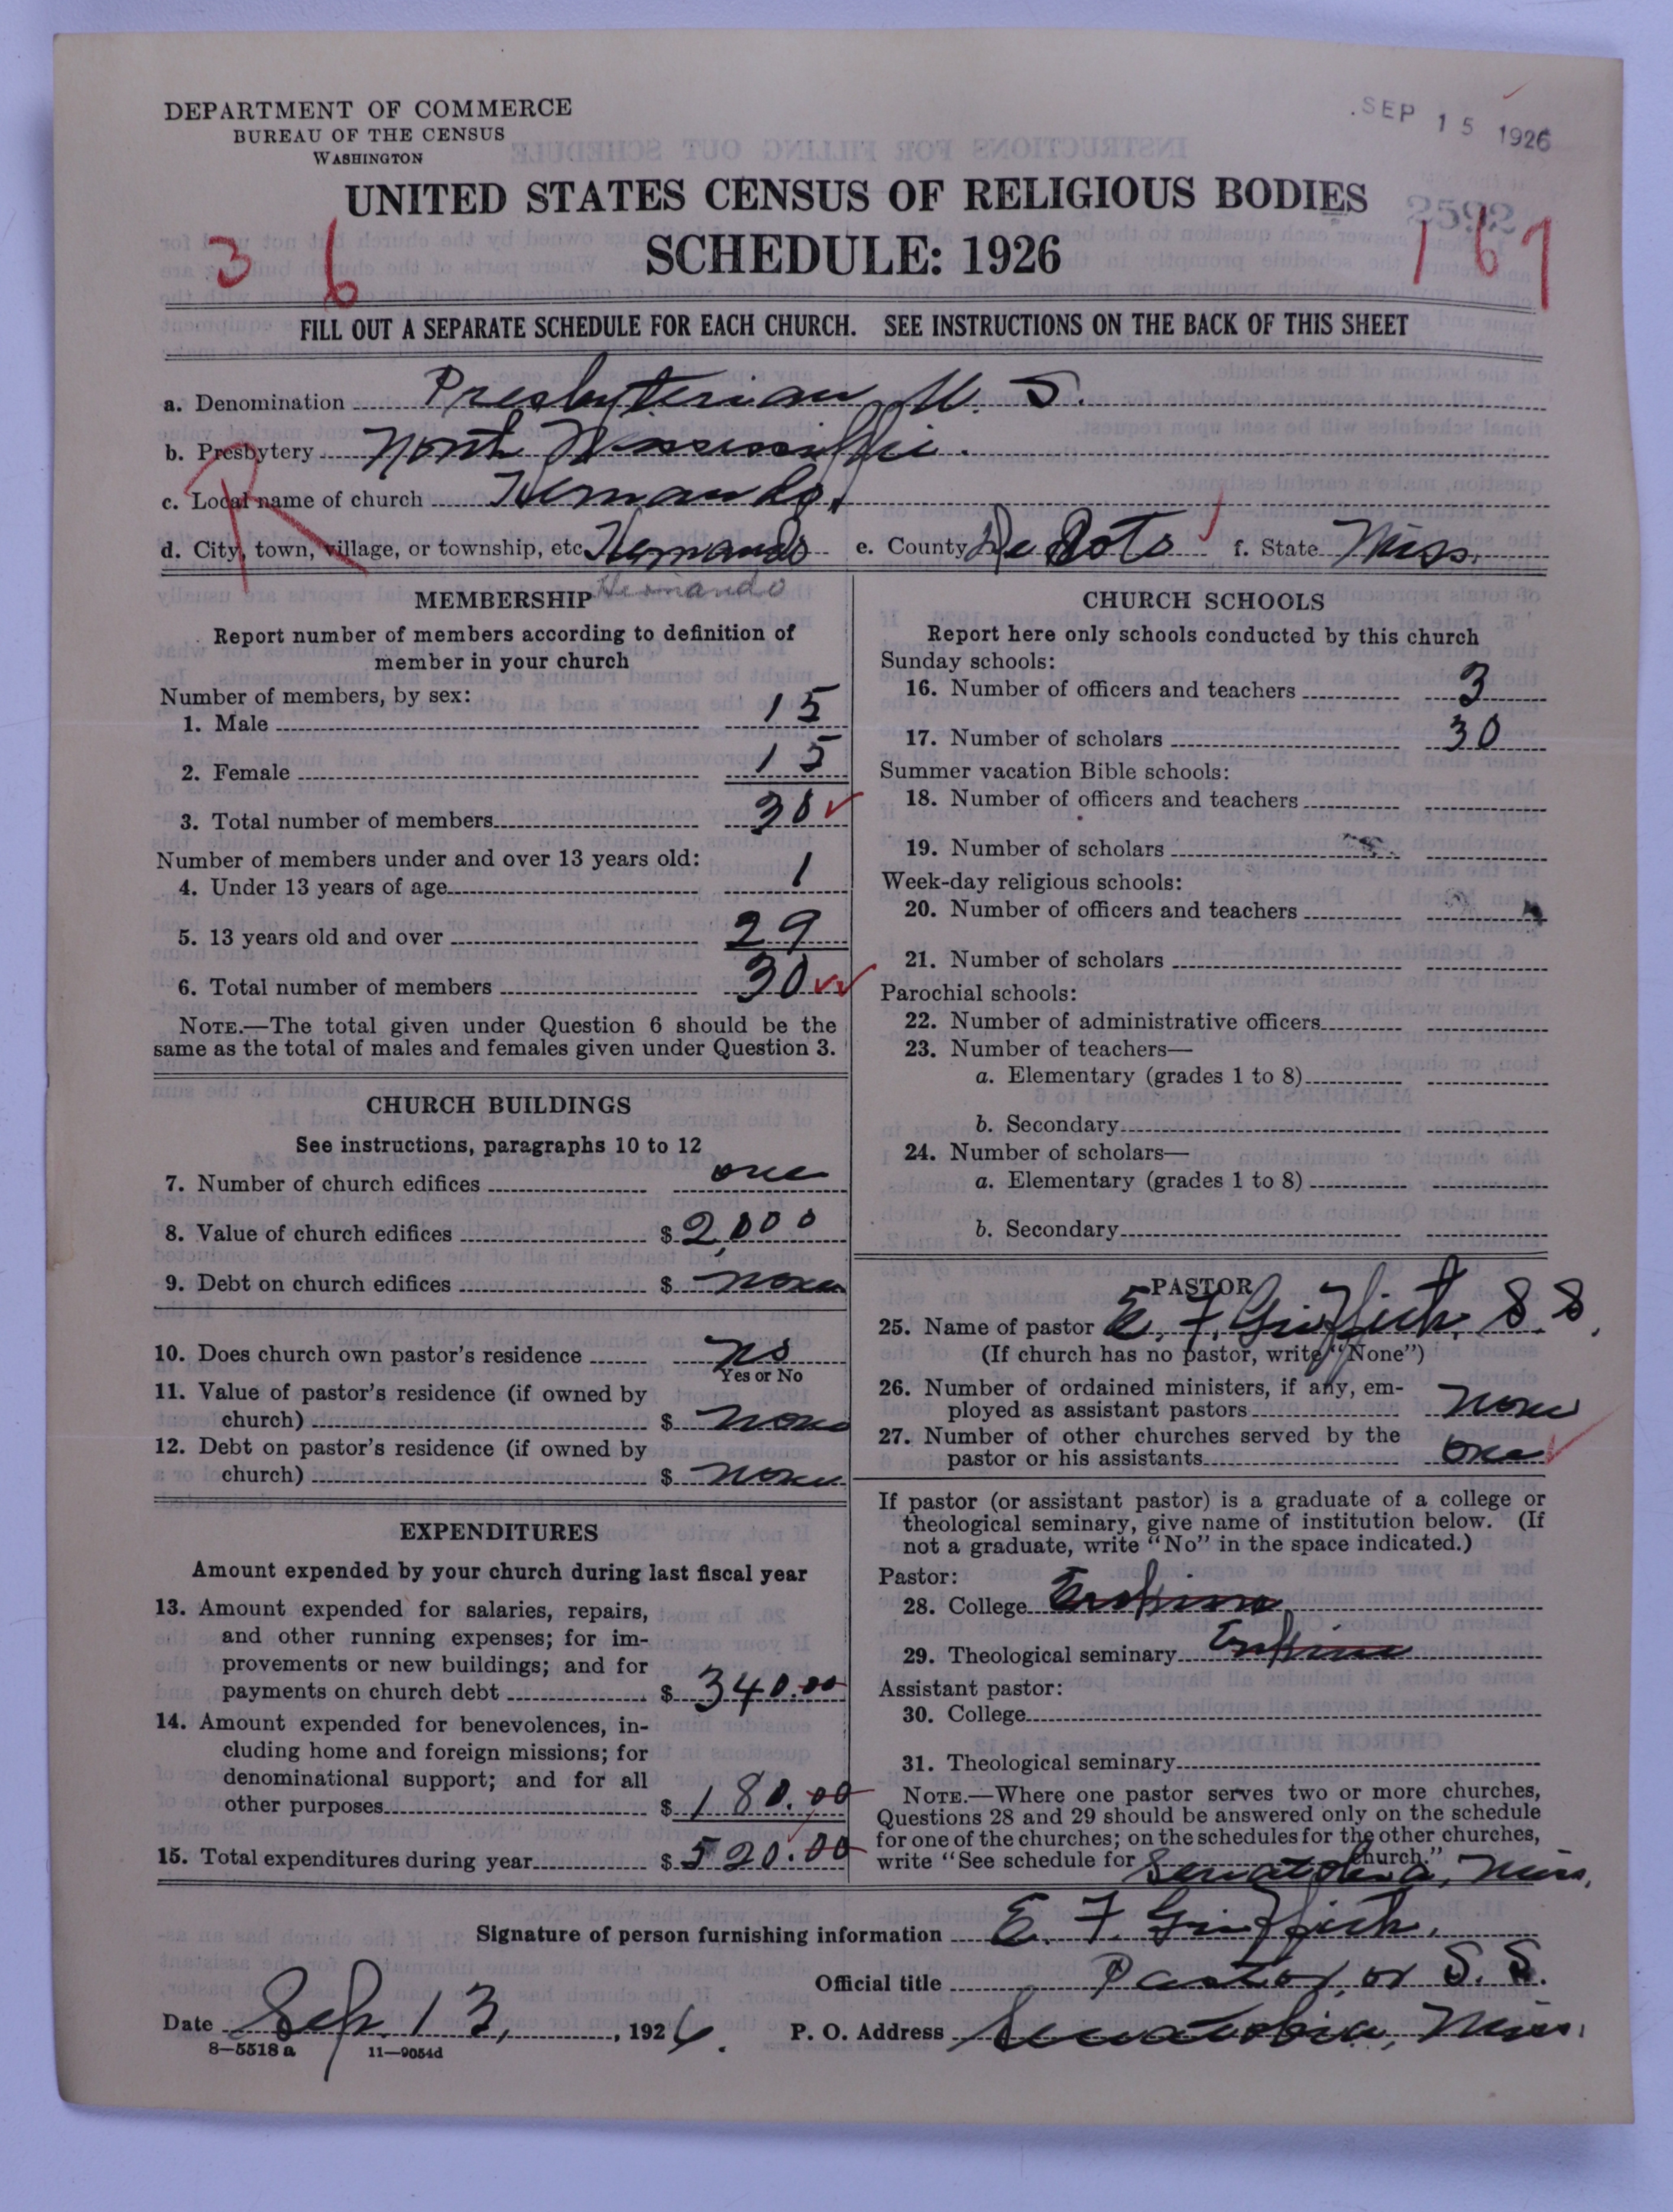 DEPARTMENT OF COMMERCE
BUREAU OF THE CENSUS
WASHINGTON
SEP 15 1926
UNITED STATES CENSUS OF RELIGIOUS BODIES
2592
3 6
SCHEDULE: 1926
167
FILL OUT A SEPARATE SCHEDULE FOR EACH CHURCH. SEE INSTRUCTIONS ON THE BACK OF THIS SHEET
a. Denomination Presbyterian U. S.
b. Presbytery North Mississippi.
c. Local name of church Hernando.
R
d. City, town, village, or township, etc. Hernando e. County De Soto f. State Miss.
Hernando
MEMBERSHIP
Report number of members according to definition of
member in your church
Number of members, by sex:
1. Male 15
2. Female 15
3. Total number of members 30
Number of members under and over 13 years old:
4. Under 13 years of age 1
5. 13 years old and over 29
6. Total number of members 30
NOTE.—The total given under Question 6 should be the
same as the total of males and females given under Question 3.
CHURCH BUILDINGS
See instructions, paragraphs 10 to 12
7. Number of church edifices one
8. Value of church edifices $ 2,000
9. Debt on church edifices $ none
10. Does church own pastor's residence no
Yes or No
11. Value of pastor's residence (if owned by
church) $ none
12. Debt on pastor's residence (if owned by
church) $ none
EXPENDITURES
Amount expended by your church during last fiscal year
13. Amount expended for salaries, repairs,
and other running expenses; for im-
provements or new buildings; and for
payments on church debt $ 340.00
14. Amount expended for benevolences, in-
cluding home and foreign missions; for
denominational support; and for all
other purposes $ 180.00
15. Total expenditures during year $ 520.00
CHURCH SCHOOLS
Report here only schools conducted by this church
Sunday schools:
16. Number of officers and teachers 3
17. Number of scholars 30
Summer vacation Bible schools:
18. Number of officers and teachers
19. Number of scholars
Week-day religious schools:
20. Number of officers and teachers
21. Number of scholars
Parochial schools:
22. Number of administrative officers
23. Number of teachers—
a. Elementary (grades 1 to 8)
b. Secondary
24. Number of scholars—
a. Elementary (grades 1 to 8)
b. Secondary
PASTOR
25. Name of pastor E. F. Griffith, S. S.
(If church has no pastor, write "None")
26. Number of ordained ministers, if any, em-
ployed as assistant pastors none
27. Number of other churches served by the
pastor or his assistants one
If pastor (or assistant pastor) is a graduate of a college or
theological seminary, give name of institution below. (If
not a graduate, write "No" in the space indicated.)
Pastor:
28. College Erskine
29. Theological seminary Erskine
Assistant pastor:
30. College
31. Theological seminary
NOTE.—Where one pastor serves two or more churches,
Questions 28 and 29 should be answered only on the schedule
for one of the churches; on the schedules for the other churches,
write "See schedule for Senatobia, Miss. Church."
Signature of person furnishing information E. F. Griffith.
Official title Pastor, or S. S.
Date Sep. 13, 1926. P. O. Address Senatobia, Miss.
8—5518a 11—9054d